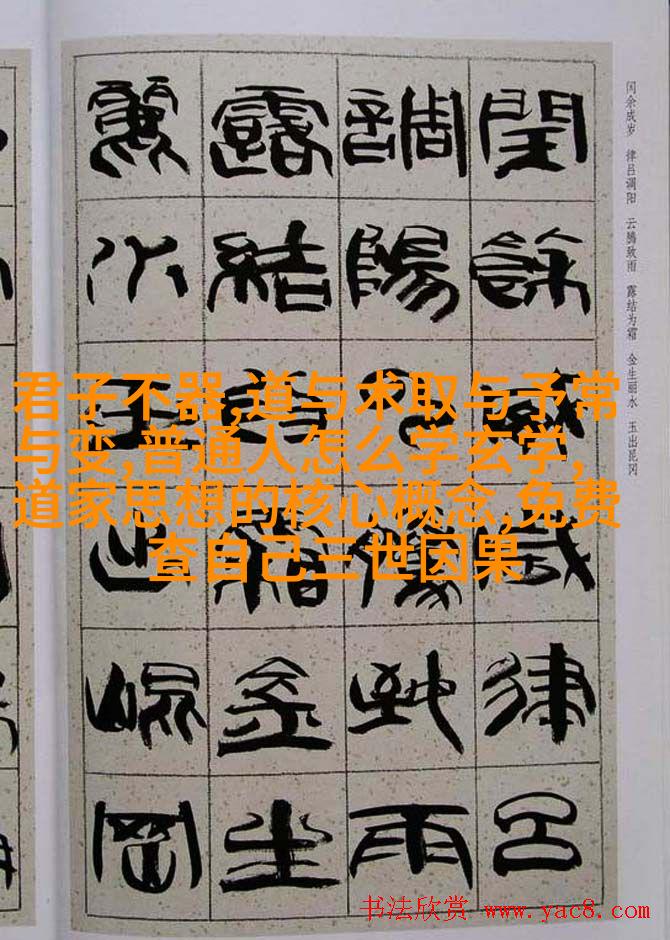 闰余成岁 律吕调阳 云腾致雨 露结为霜 金生丽水 玉出昆冈
閏餘成歲律呂
調陽云騰致雨
露結為霜金生
麗水玉出崐岡
君子不器,道与术取与予常
与变,普通人怎么学玄学,
道家思想的核心概念,免费
查自己三世因果
书法欣赏 www.yac8.com